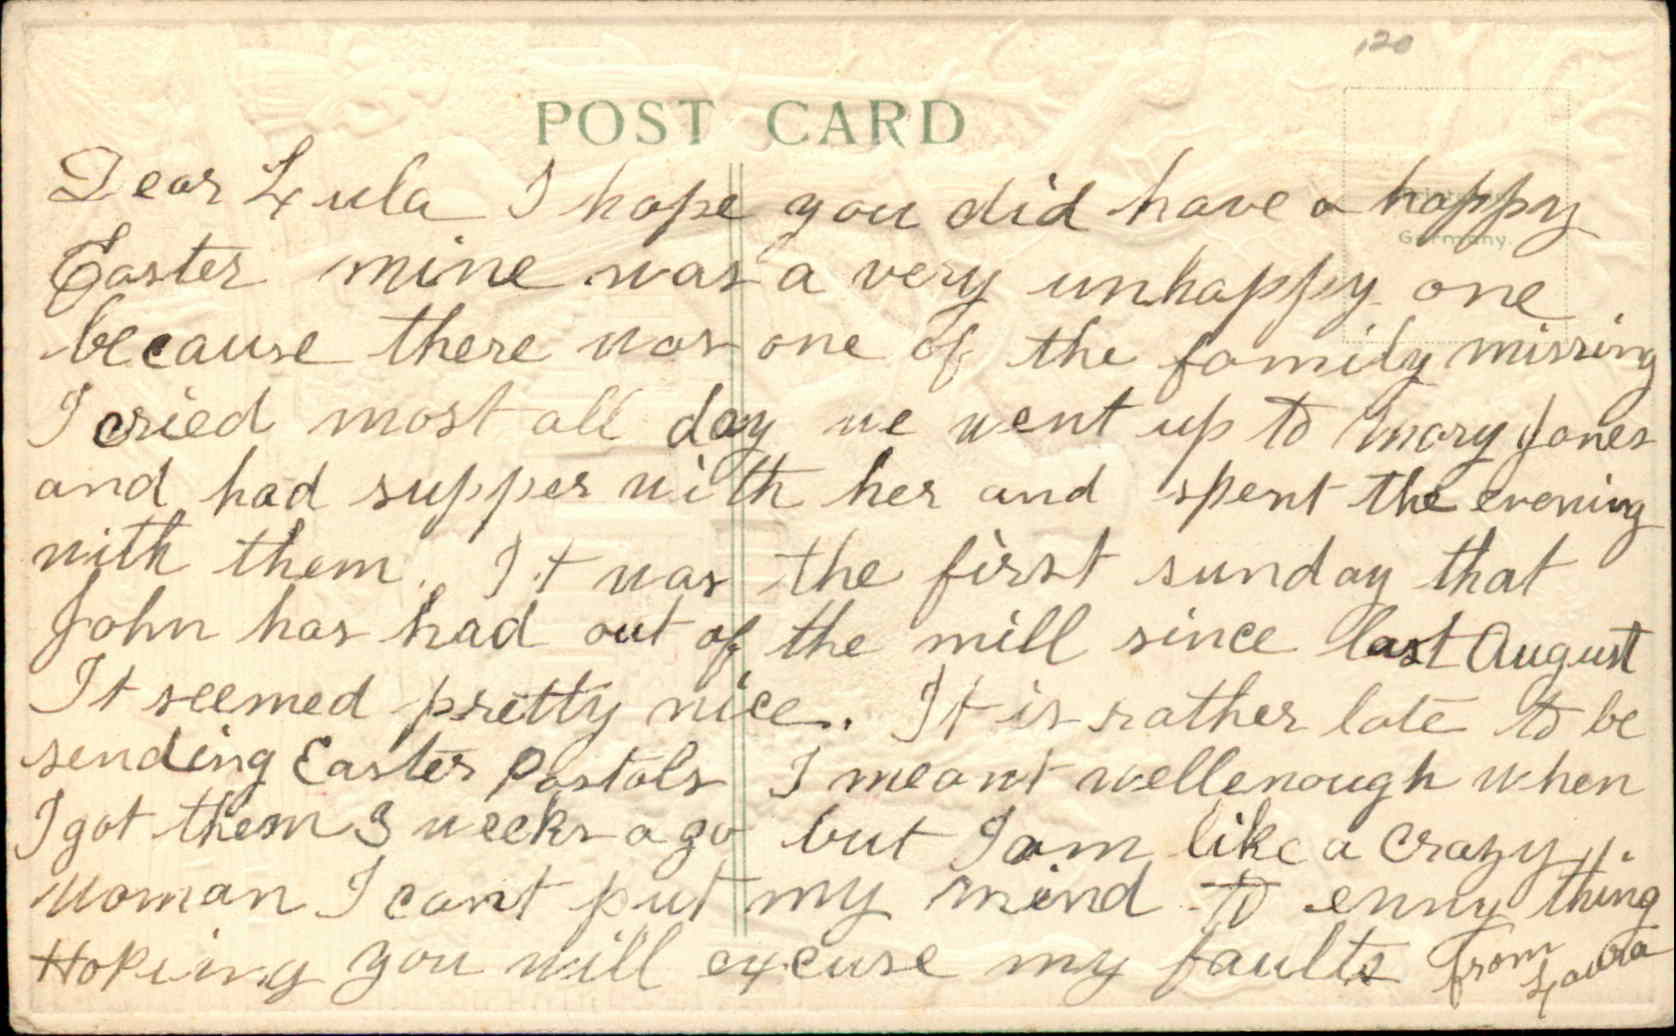 120
POST CARD
Dear Lula I hope you did have a happy
Germany
Easter mine was a very unhappy one
because there was one of the family missing
I cried most all day we went up to Mary Jones
and had supper with her and spent the evening
with them. It was the first sunday that
John has had out of the mill since last August
It seemed pretty nice. It is rather late to be
sending Easter Postals I meant wellenough when
I got them 3 weeks ago but I am like a crazy
woman I cant put my mind to enny thing
Hopeing you will excuse my faults from
Laura